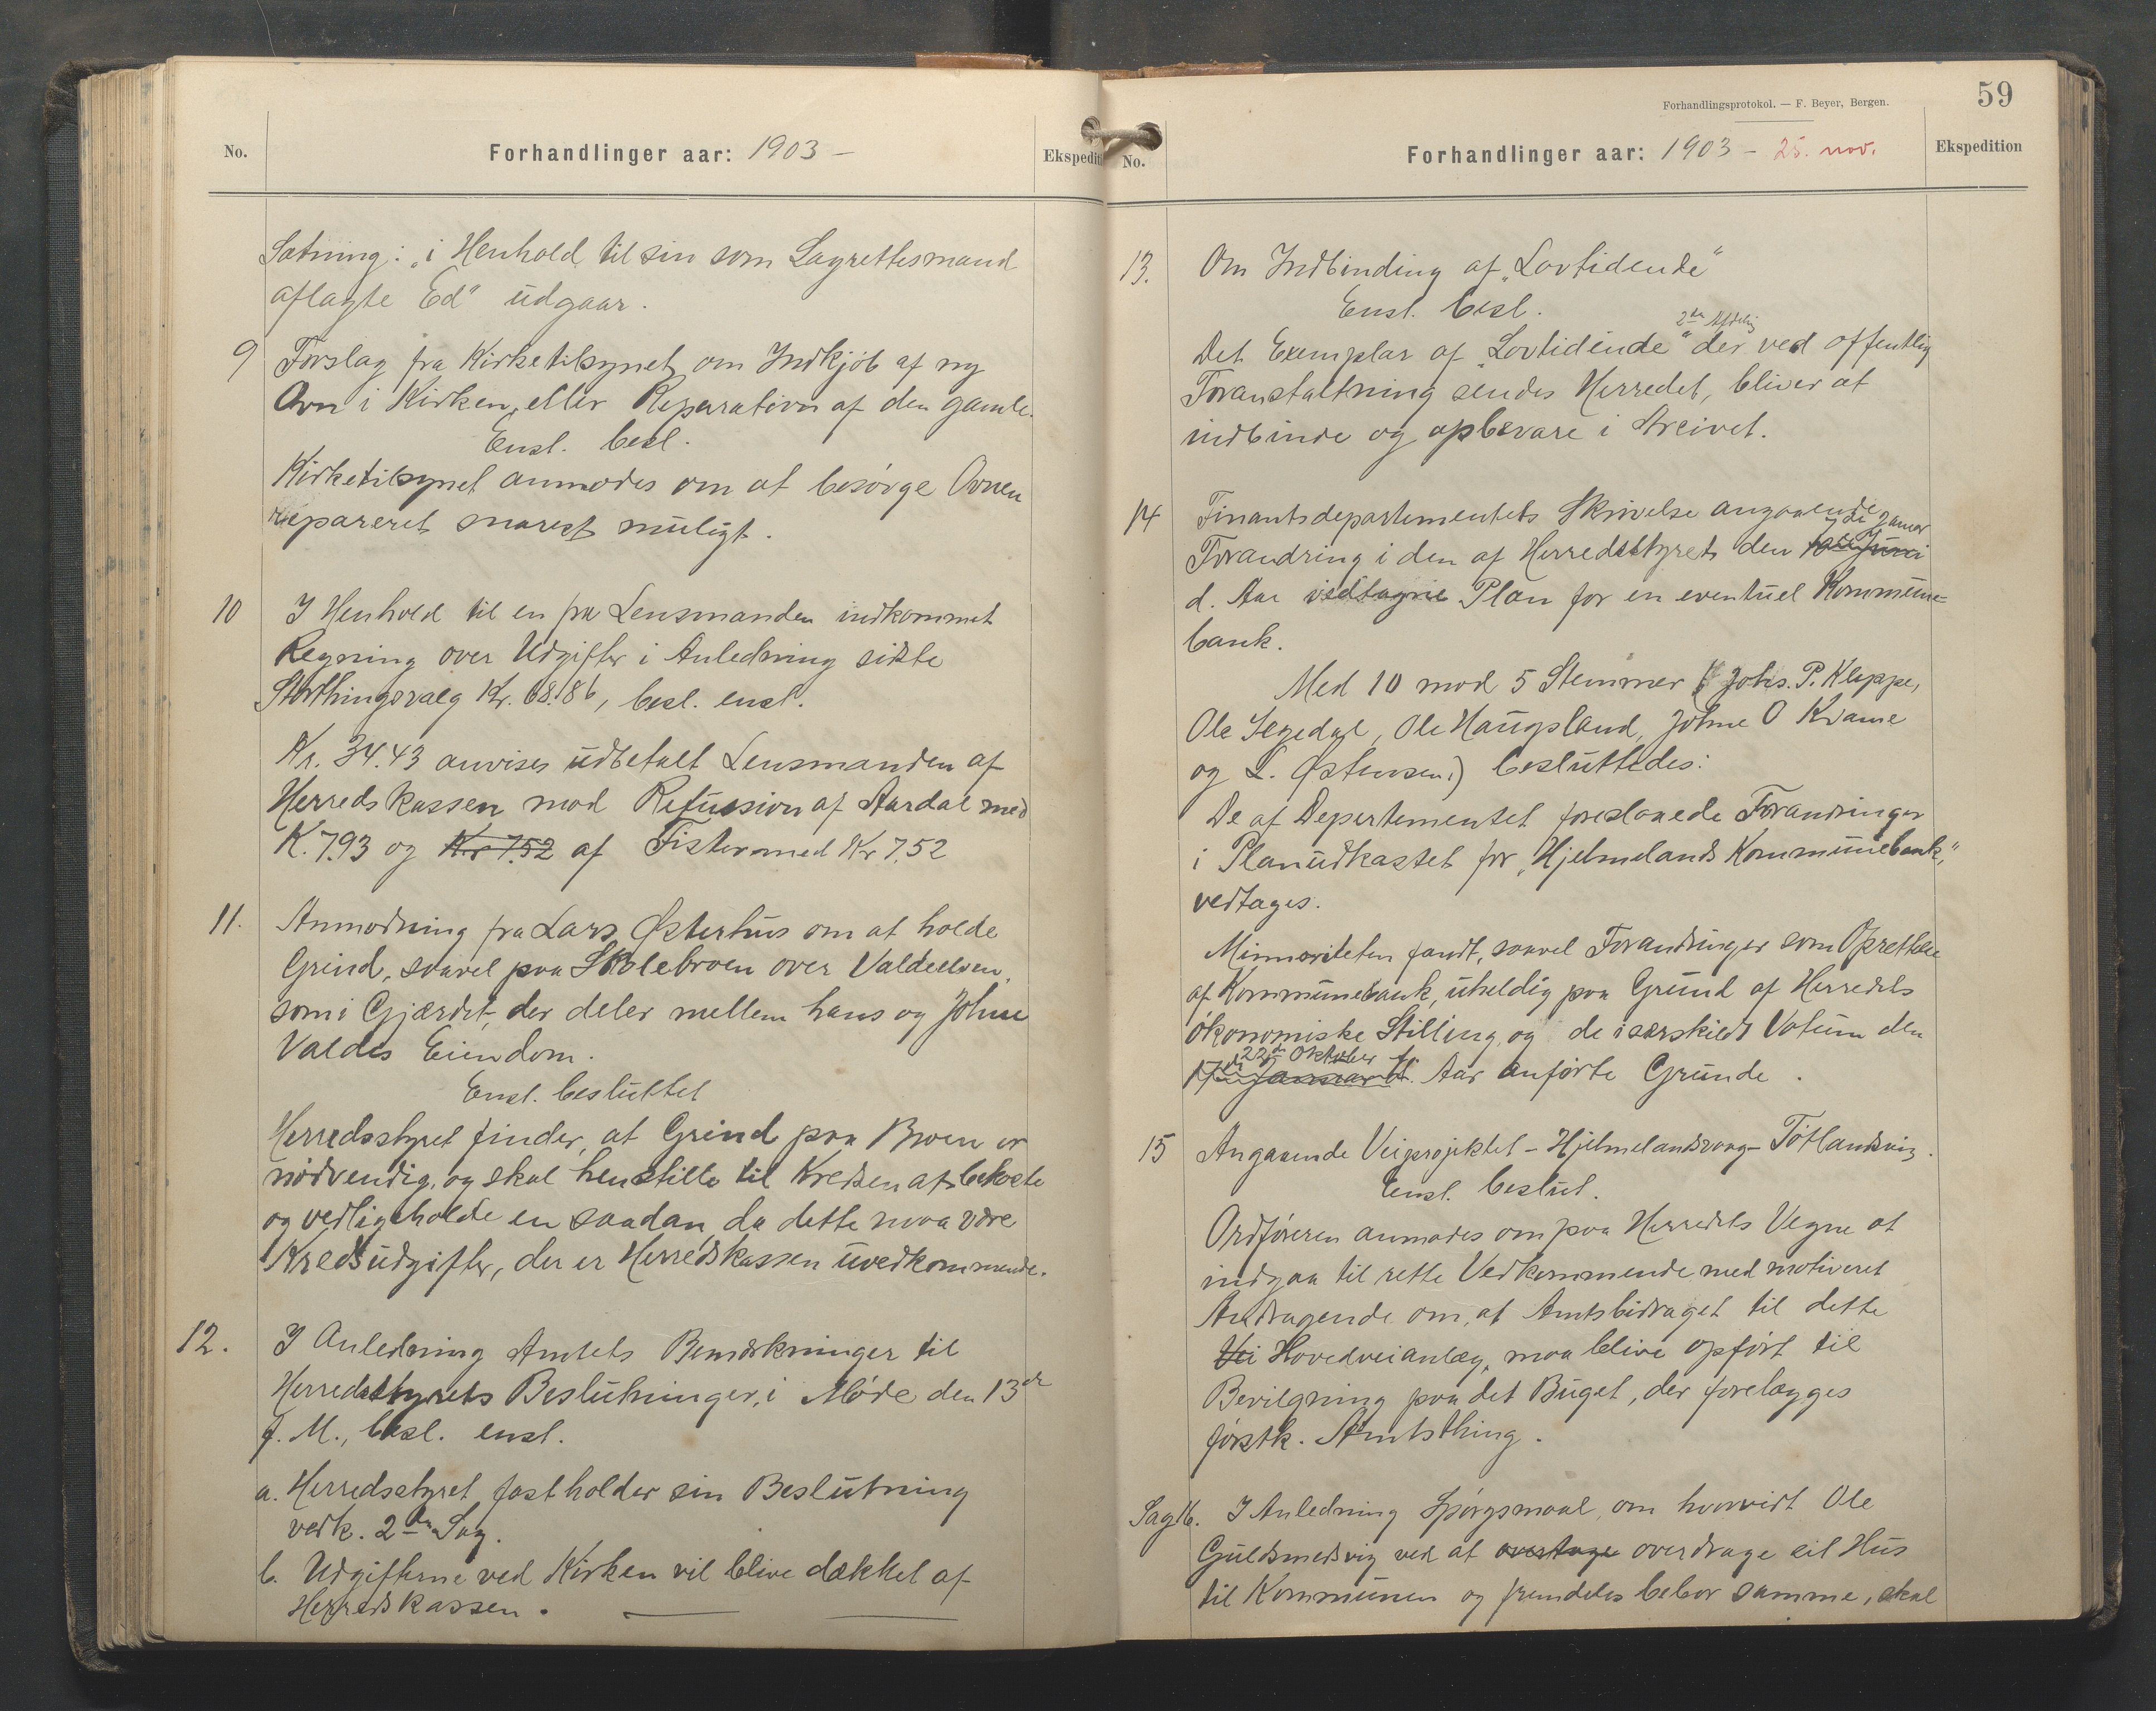 No.
Forhandlinger aar: 1903 –
Ekspedit
Sætning: „i Henhold til sin som Lagrettesmand
aflagte Ed" udgaar.
9 Forslag fra Kirketilsynet om Indkjøb af ny
Ovn i Kirken, eller Reparation af den gamle.
Enst. besl.
Kirketilsynet anmodes om at besørge Ovnen
repareret snarest muligt.
10 I Henhold til en fra Lensmanden indkommet
Regning over Udgifter i Anledning sidste
Storthingsvalg Kr. 68.86, besl. enst.
Kr. 34.43 anvises udbetalt Lensmanden af
Herredskassen mod Refusion af Aardal med
K. 7.93 og Kr 7.52 af Fister med Kr 7.52
11. Anmodning fra Lars Østerhus om at holde
Grind, saavel paa Skolebroen over Valdeelven,
som i Gjærdet, der deler mellem hans og Johne
Valdes Eiendom.
Enst. besluttet
Herredsstyret finder, at Grind paa Broen er
nødvendig, og skal henstille til Kredsen at bekoste
og vedligeholde en saadan, da dette maa være
Kredsudgifter, der er Herredskassen uvedkommende.
12. I Anledning Amtets Bemærkninger til
Herredsstyrets Beslutninger, i Møde den 13de
f. M., besl. enst.
a. Herredsstyret fastholder sin Beslutning
vedk. 2den Sag.
b. Udgifterne ved Kirken vil blive dækket af
Herredskassen.
Forhandlingsprotokol. — F. Beyer, Bergen.
59
No.
Forhandlinger aar: 1903 – 25. nov.
Ekspedition
13. Om Indbinding af „Lovtidende"
Enst. besl.
2den Afdeling
Det Exemplar af „Lovtidende" der ved offentlig
Foranstaltning sendes Herredet, bliver at
indbinde og opbevare i Arcivet.
14 Finantsdepartementets Skrivelse angaaende
Forandring i den af Herredsstyret den Juni
d. Aar vedtagne Plan for en eventuel Kommune=
bank.
Med 10 mod 5 Stemmer (Johs. P. Kleppe,
Ole Segedal, Ole Haugsland, Johne O Kvame
og L. Østensen.) besluttedes:
De af Departementet foreslaaede Forandringer
i Planudkastet for „Hjelmelands Kommunebank",
vedtages.
Minoriteten fandt, saavel Forandringer som Oprettelse
af Kommunebank, uheldig paa Grund af Herredets
økonomiske Stilling, og de i særskildt Votum den
22de Oktober f.
17de Januar d. Aar anførte Grunde.
15 Angaaende Veiprojektet – Hjelmelandsvaag – Tøtlandsvig.
Enst. beslut.
Ordføreren anmodes om paa Herredets Vegne at
indgaa til rette Vedkommende med motiveret
Andragende om, at Amtsbidraget til dette
Vei Hovedveianlæg, maa blive opført til
Bevilgning paa det Buget, der forelægges
førstk. Amtsthing.
Sag 16. I Anledning Spørgsmaal, om hvorvidt Ole
Guldsmedvig ved at overtage overdrage sit Hus
til Kommunen og fremdeles bebor samme, skal